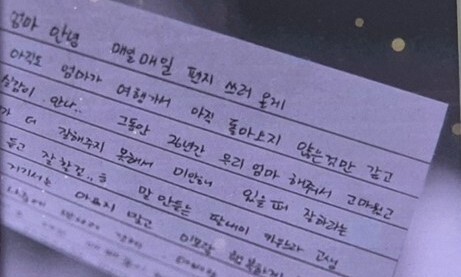 엄마 안녕 매일매일 편지 쓰러 올게
아직도 엄마가 여행가서 아직 돌아오지 않은것만 같고
실감이 안나.. 그동안 26년간 우리 엄마 해줘서 고마웠고
더 잘해주지 못해서 미안해 있을때 잘하라는
듣고 잘할걸..ㅎ 말 안듣는 딸내미 키우느라 고생
거기서는 아프지 말고 행복하게